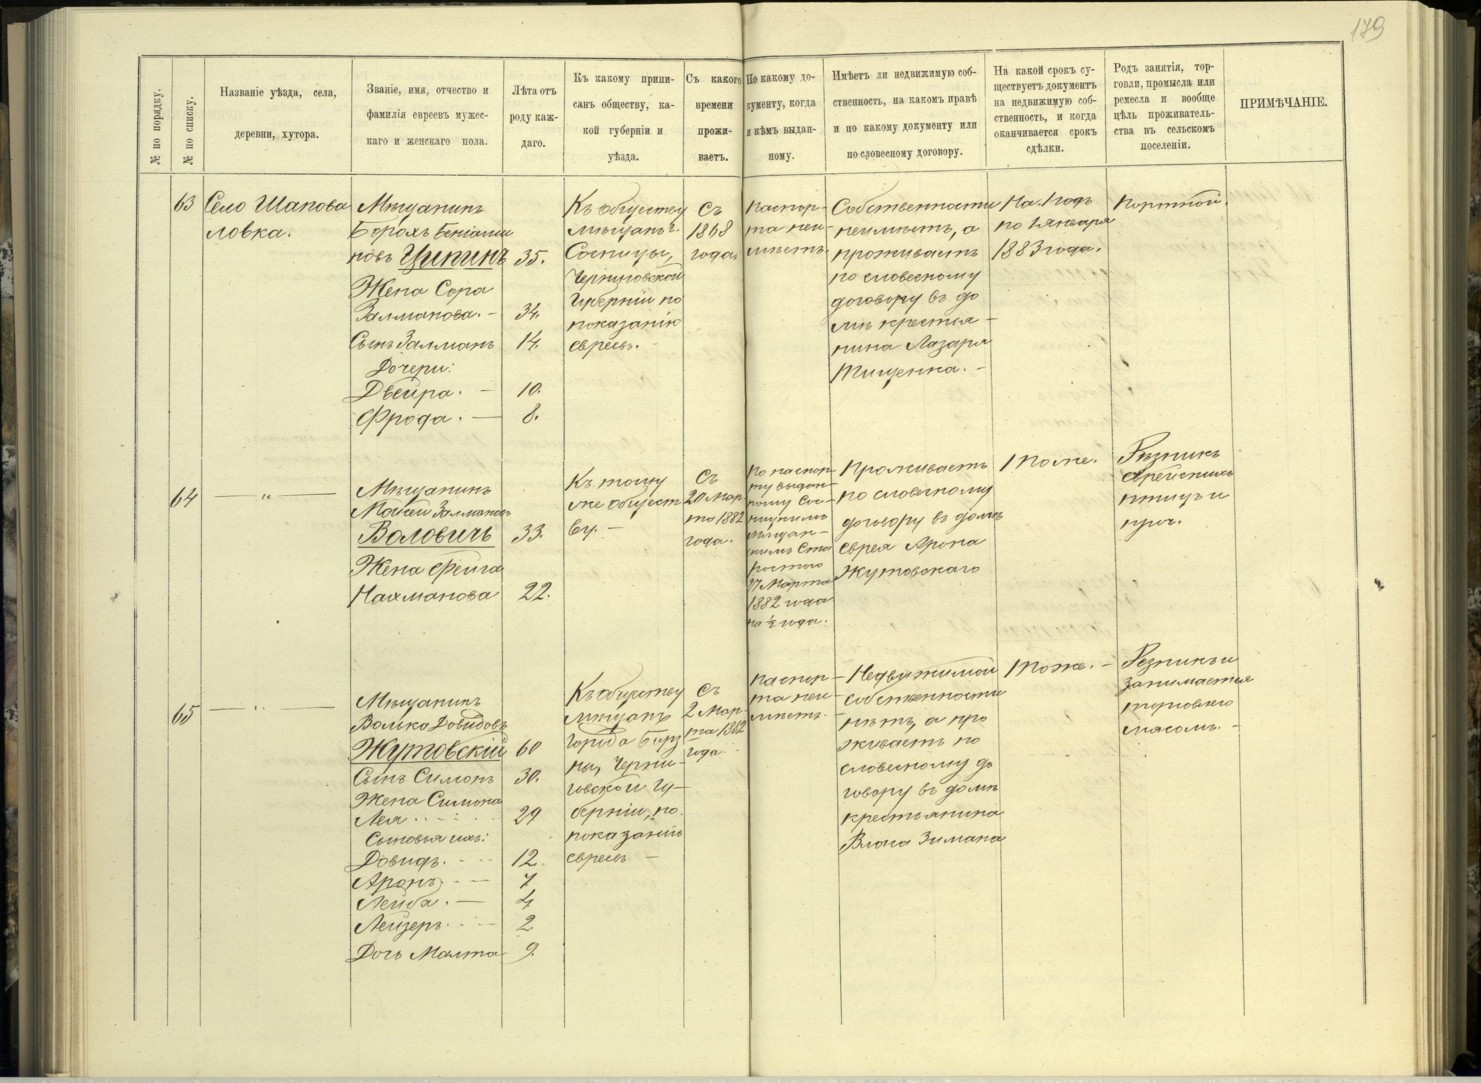 179
№ по порядку.
№ по списку.
Названіе уѣзда, села,
деревни, хутора.
Званіе, имя, отчество и
фамилія евреевъ мужес-
каго и женскаго пола.
Лѣта отъ
роду каж-
даго.
Къ какому припи-
санъ обществу, ка-
кой губерніи и
уѣзда.
Съ какого
времени
прожи-
ваетъ.
По какому до-
кументу, когда
и кѣмъ выдан-
ному.
Имѣетъ ли недвижимую соб-
ственность, на какомъ правѣ
и по какому документу или
по словесному договору.
На какой срокъ су-
ществуетъ документъ
на недвижимую соб-
ственность, и когда
оканчивается срокъ
сдѣлки.
Родъ занятія, тор-
говли, промысла или
ремесла и вообще
цѣль проживатель-
ства въ сельскомъ
поселеніи.
ПРИМѢЧАНІЕ.
63
Село Шапова
ловка.
Мѣщанинъ
Борохъ Беніами
новъ Ципинъ 35.
Жена Сора
Залманова. – 34.
Сынъ Залманъ 14.
Дочери:
Двейра. – 10.
Фрода. – 8.
Къ обществу
мѣщанъ г.
Сосницы,
Черниговской
Губерніи по
показанію
евреевъ. –
Съ
1868
года.
Паспор-
та неи-
мѣетъ.
Собственности
неимѣетъ, а
проживаетъ
по словесному
договору въ до
мѣ крестья-
нина Лазаря
Тищенка. –
На 1 годъ
по 1 января
1883 года.
Портной.
64
— „ —
Мѣщанинъ
Мовсей Залмановъ
Воловичъ 33.
Жена Фейга
Нахманова 22.
Къ тому
же общест
ву. –
Съ
20 Мар-
та 1882
года.
По паспор-
ту выдан-
ному Сос-
ницкимъ
мѣщан-
скимъ Ста
ростою
17 Марта
1882 года
на ½ года.
Проживаетъ
по словесному
договору въ домѣ
еврея Арона
Жутовскаго
Тоже.
Рѣзникъ
еврейскихъ
птицъ и
проч.
65
— „ —
Мѣщанинъ
Волька Довидовъ
Жутовскій 60
Сынъ Симонъ 30.
Жена Симона
Лея 29
Сыновья ихъ:
Довидъ. 12.
Аронъ 7
Лейба. – 4
Лейзеръ. 2
Дочь Малта 9.
Къ обществу
мѣщанъ
города Борз
ны, Черни-
говской Гу-
берніи, по
показанію
евреевъ –
Съ
2 Мар-
та 1882
года.
Паспор-
та неи-
мѣетъ.
Недвижимой
собственности
нѣтъ, а про
живаетъ по
словесному до
говору въ домѣ
крестьянина
Власа Зимана
Тоже. –
Рѣзникъ и
занимается
торговлею
мясомъ. –